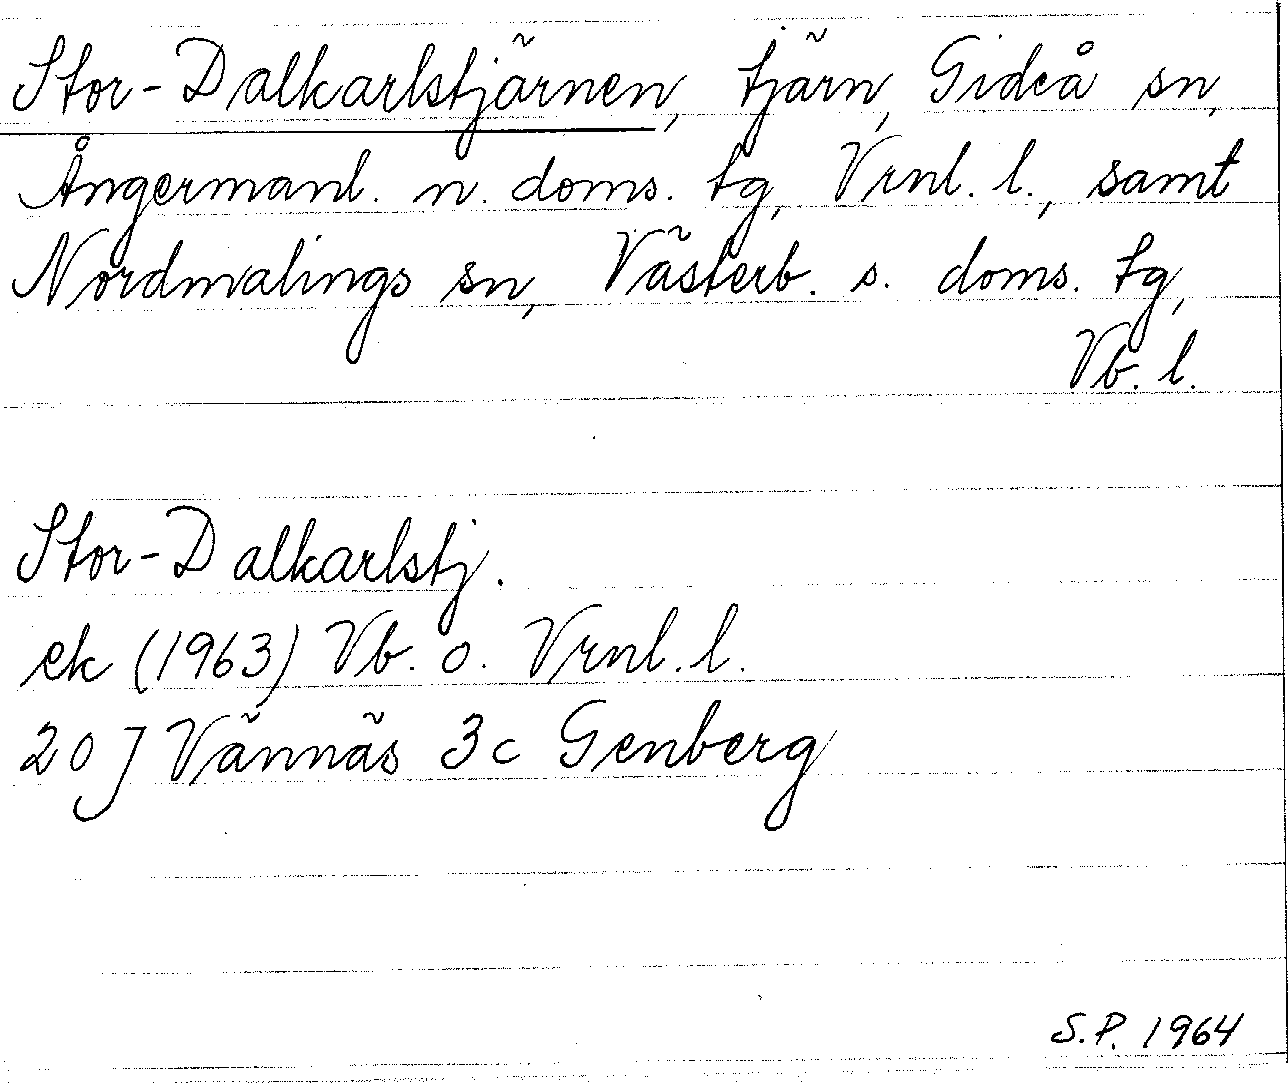 Stor-Dalkarlstjärnen, tjärn, Gideå sn,
Ångermanl. n. doms. tg, Vrnl. l., samt
Nordmalings sn, Västerb. s. doms. tg,
Vb. l.
Stor-Dalkarlstj.
ek (1963) Vb. o. Vrnl. l.
20 J Vännäs 3c Genberg
S.P. 1964